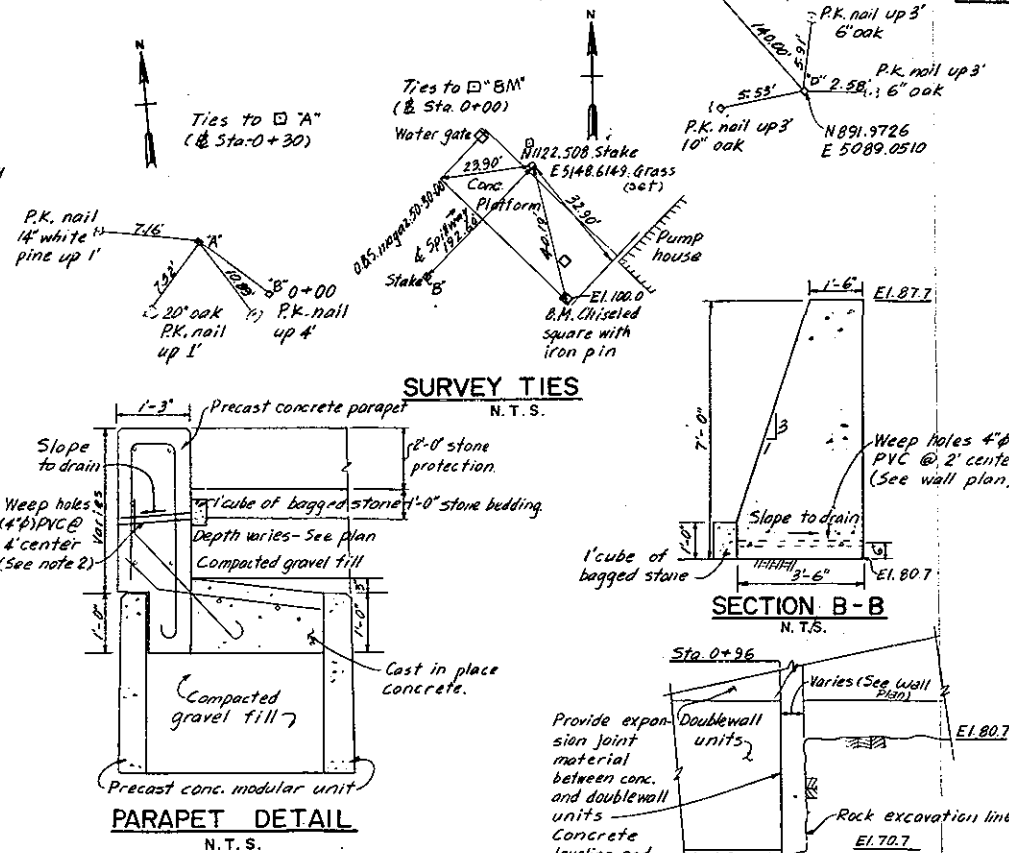 N
Ties to "A"
(℄ Sta. 0+30)
P.K. nail
14" white
pine up 1'
7.16
"A"
7.92'
10.89'
"B" 0+00
20" oak
P.K. nail
up 1'
P.K. nail
up 4'
N
Ties to "BM"
(℄ Sta. 0+00)
Water gate
N1122.508 Stake
E5148.6149 Grass
(set)
23.90'
Conc.
Platform
32.90'
℄ Spillway
Stake "B"
Pump
house
El. 100.0
B.M. Chiseled
square with
iron pin
140.00'
5.91'
P.K. nail up 3'
6" oak
"D"
5.53'
2.58'
P.K. nail up 3'
6" oak
P.K. nail up 3'
10" oak
N891.9726
E 5089.0510
SURVEY TIES
N.T.S.
1'-3"
Precast concrete parapet
Slope
to drain
2'-0" stone
protection.
Weep holes
(4"ϕ) PVC @
4' center
(See note 2)
Varies
1' cube of bagged stone
1'-0" stone bedding
Depth varies - See plan
Compacted gravel fill
3"
1'-0"
1'-0"
Cast in place
concrete.
Compacted
gravel fill
Precast conc. modular unit
PARAPET DETAIL
N.T.S.
1'-6"
El. 87.7
7'-0"
3
1
Weep holes 4"ϕ
PVC @ 2' cente
(See wall plan)
Slope to drain
1'-0"
6"
1' cube of
bagged stone
3'-6"
El. 80.7
SECTION B-B
N.T.S.
Sta. 0+96
Varies (See Wall
Plan)
Provide expan-
sion joint
material
between conc.
and doublewall
units
Concrete
Doublewall
units
El. 80.7
Rock excavation line
El. 70.7